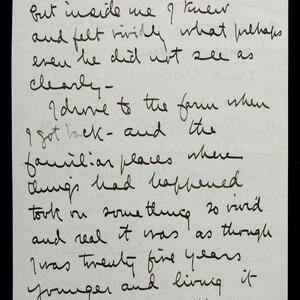 but inside me I knew
and felt vividly what perhaps
even he did not see as
clearly—
I drove to the farm when
I got back - and the
familiar places where
things had happened
took on something so vivid
and real it was as though
I was twenty five years
younger and living it